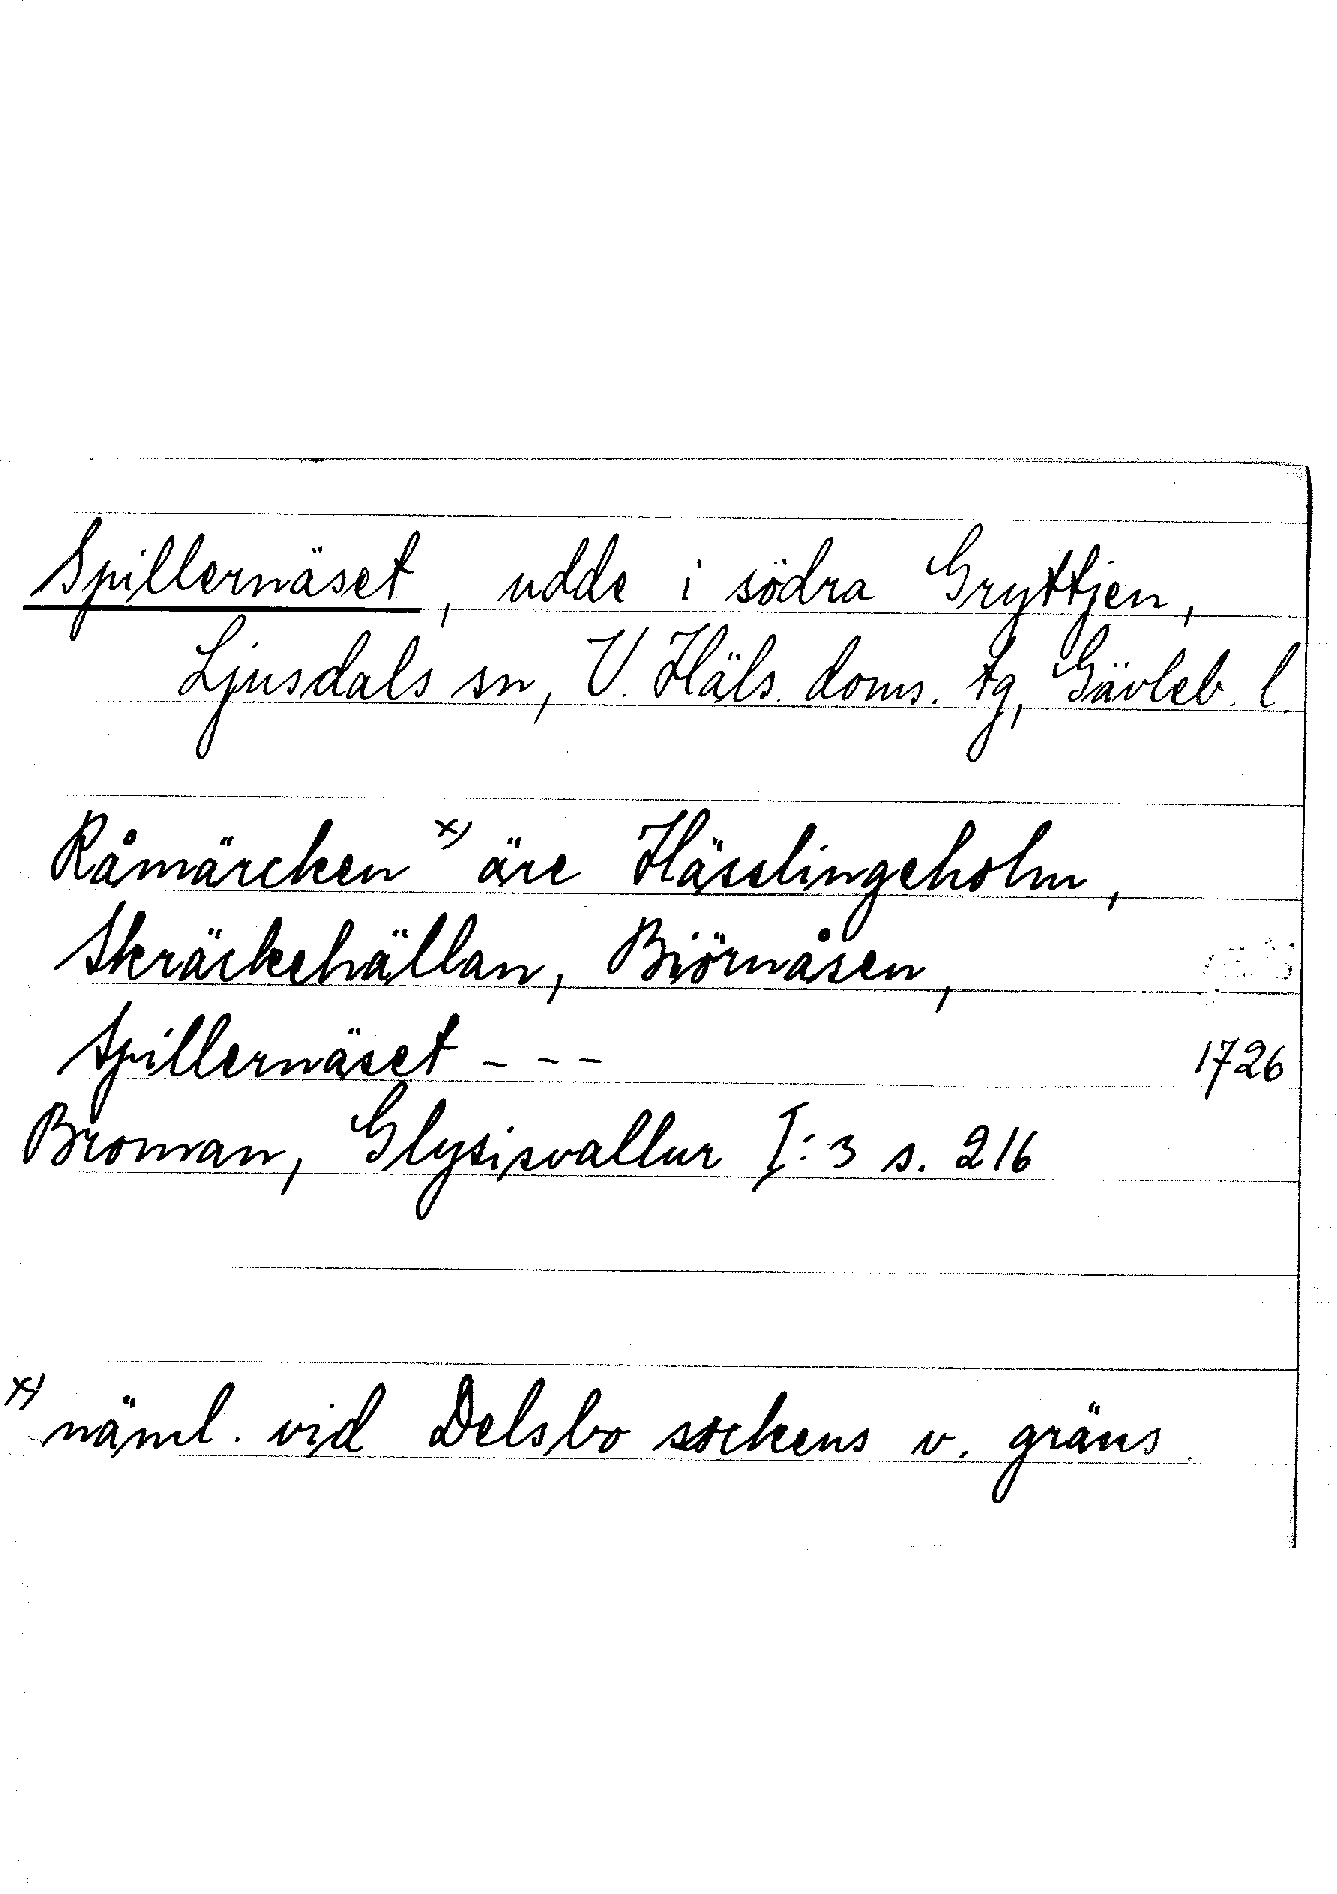 Spillernäset, udde i södra Gryttjen,
Ljusdals sn, V. Häls. doms. tg, Gävleb. l.
Råmärcken x) äre Hässlingeholm,
Skräckehällan, Biörnåsen,
Spillernäset - - - 1726
Broman, Glysisvallur I:3 s. 216
x) näml. vid Delsbo sockens v. gräns.